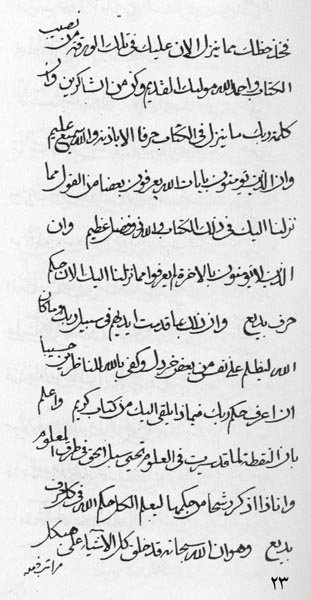 فخذ حظك مما ينزل الان عليك في تلك الورقة من نصيب
الكتاب واحمد الله موليك القديم وكن من الشاكرين وان
كلمة ربك ما ينزل في الكتاب حرفا الا باذنه والله سميع عليم
وان الذين يؤمنون بايات الله يعرفون بعضا من القول مما
نزلنا اليك في ذلك الكتاب والله في فضل عظيم وان
الذين لا يؤمنون بالاخرة لم يعرفوا مما نزلنا اليك الان حكم
حرف بديع وان ذلك بما قدمت ايديهم في سبيل ربك وما كان
الله ليظلم على نفس من بعض خردل وكفى بالله للناظرين حسيبا
ان اعرف حكم ربك فيما القي اليك من كتاب كريم واعلم
بان النقطة لما في العلوم سبل الحق في طرف المعلوم
وانا اذا اذكر من حكمها ليعلم الكل حكم الله في كل حرف
بديع وهو ان الله سبحانه قد خلق كل الاشياء على هيكل
مراتب فعله
٢٣